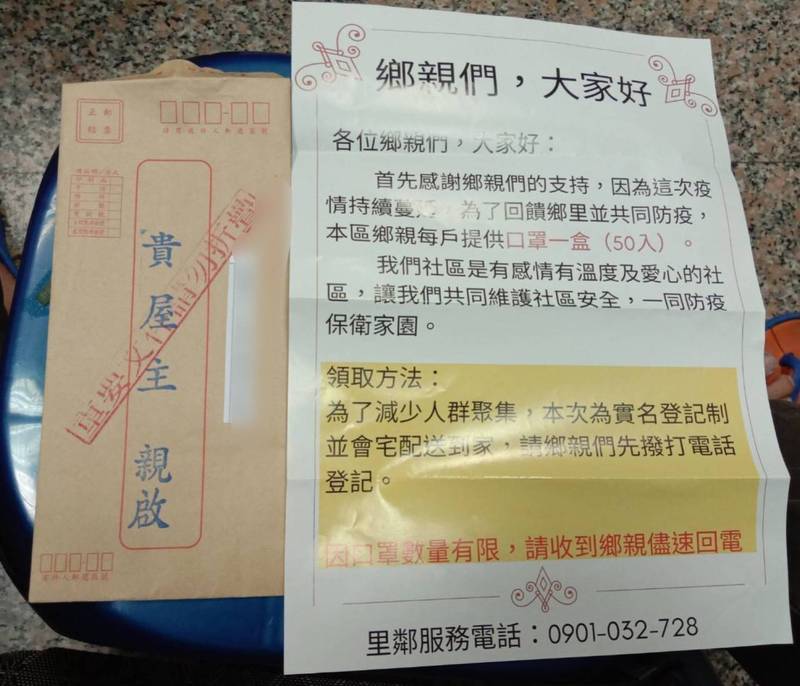 貴屋主 親啟
重要文件請勿折疊
鄉親們，大家好
各位鄉親們，大家好：
首先感謝鄉親們的支持，因為這次疫
情持續蔓延，為了回饋鄉里並共同防疫，
本區鄉親每戶提供口罩一盒（50入）。
我們社區是有感情有溫度及愛心的社
區，讓我們共同維護社區安全，一同防疫
保衛家園。
領取方法：
為了減少人群聚集，本次為實名登記制
並會宅配送到家，請鄉親們先撥打電話
登記。
因口罩數量有限，請收到鄉親儘速回電
里鄰服務電話：0901-032-728